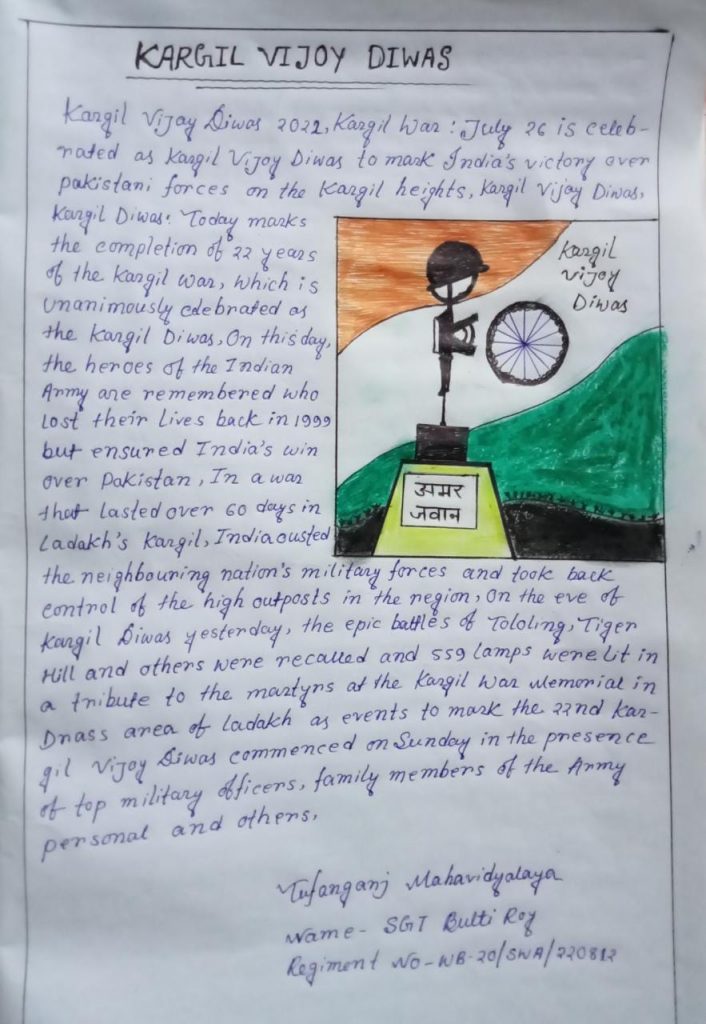 KARGIL VIJOY DIWAS
Kargil Vijay Diwas 2022, Kargil War : July 26 is celeb-
rated as Kargil Vijay Diwas to mark India's victory over
pakistani forces on the Kargil heights, Kargil Vijay Diwas,
Kargil Diwas. Today marks
the completion of 22 years
of the Kargil war, which is
unanimously celebrated as
the Kargil Diwas, On this day,
the heroes of the Indian
Army are remembered who
lost their lives back in 1999
but ensured India's win
over Pakistan, In a war
that lasted over 60 days in
Ladakh's Kargil, India ousted
Kargil
vijoy
Diwas
अमर
जवान
the neighbouring nation's military forces and took back
control of the high outposts in the region, On the eve of
Kargil Diwas yesterday, the epic battles of Tololing, Tiger
Hill and others were recalled and 559 lamps were lit in
a tribute to the martyrs at the Kargil War Memorial in
Drass area of ladakh as events to mark the 22nd Kar-
gil Vijay Diwas commenced on Sunday in the presence
of top military officers, family members of the Army
personal and others,
Tufanganj Mahavidyalaya
Name- SGT Bulti Roy
Regiment No-WB-20/SWA/220812